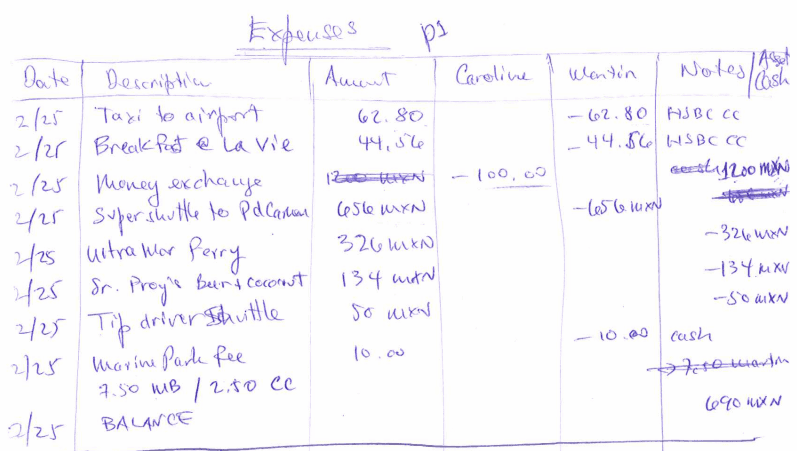 Expenses p1
Date Description Amount Caroline Martin Notes / Asset Cash
2/25 Taxi to airport 62.80 -62.80 HSBC CC
2/25 Breakfast @ La Vie 44.56 -44.56 HSBC CC
2/25 Money exchange 1200 MXN -100.00 cash 1200 MXN
2/25 Supershuttle to PdCarmen 656 MXN -656 MXN
2/25 UltraMar Ferry 326 MXN -326 MXN
2/25 Sr. Frog's Beer + coconut 134 MXN -134 MXN
2/25 Tip driver Shuttle 50 MXN -50 MXN
2/25 Marine Park Fee 10.00 -10.00 cash
7.50 MB / 2.50 CC → 7.50 Martin
2/25 BALANCE 690 MXN